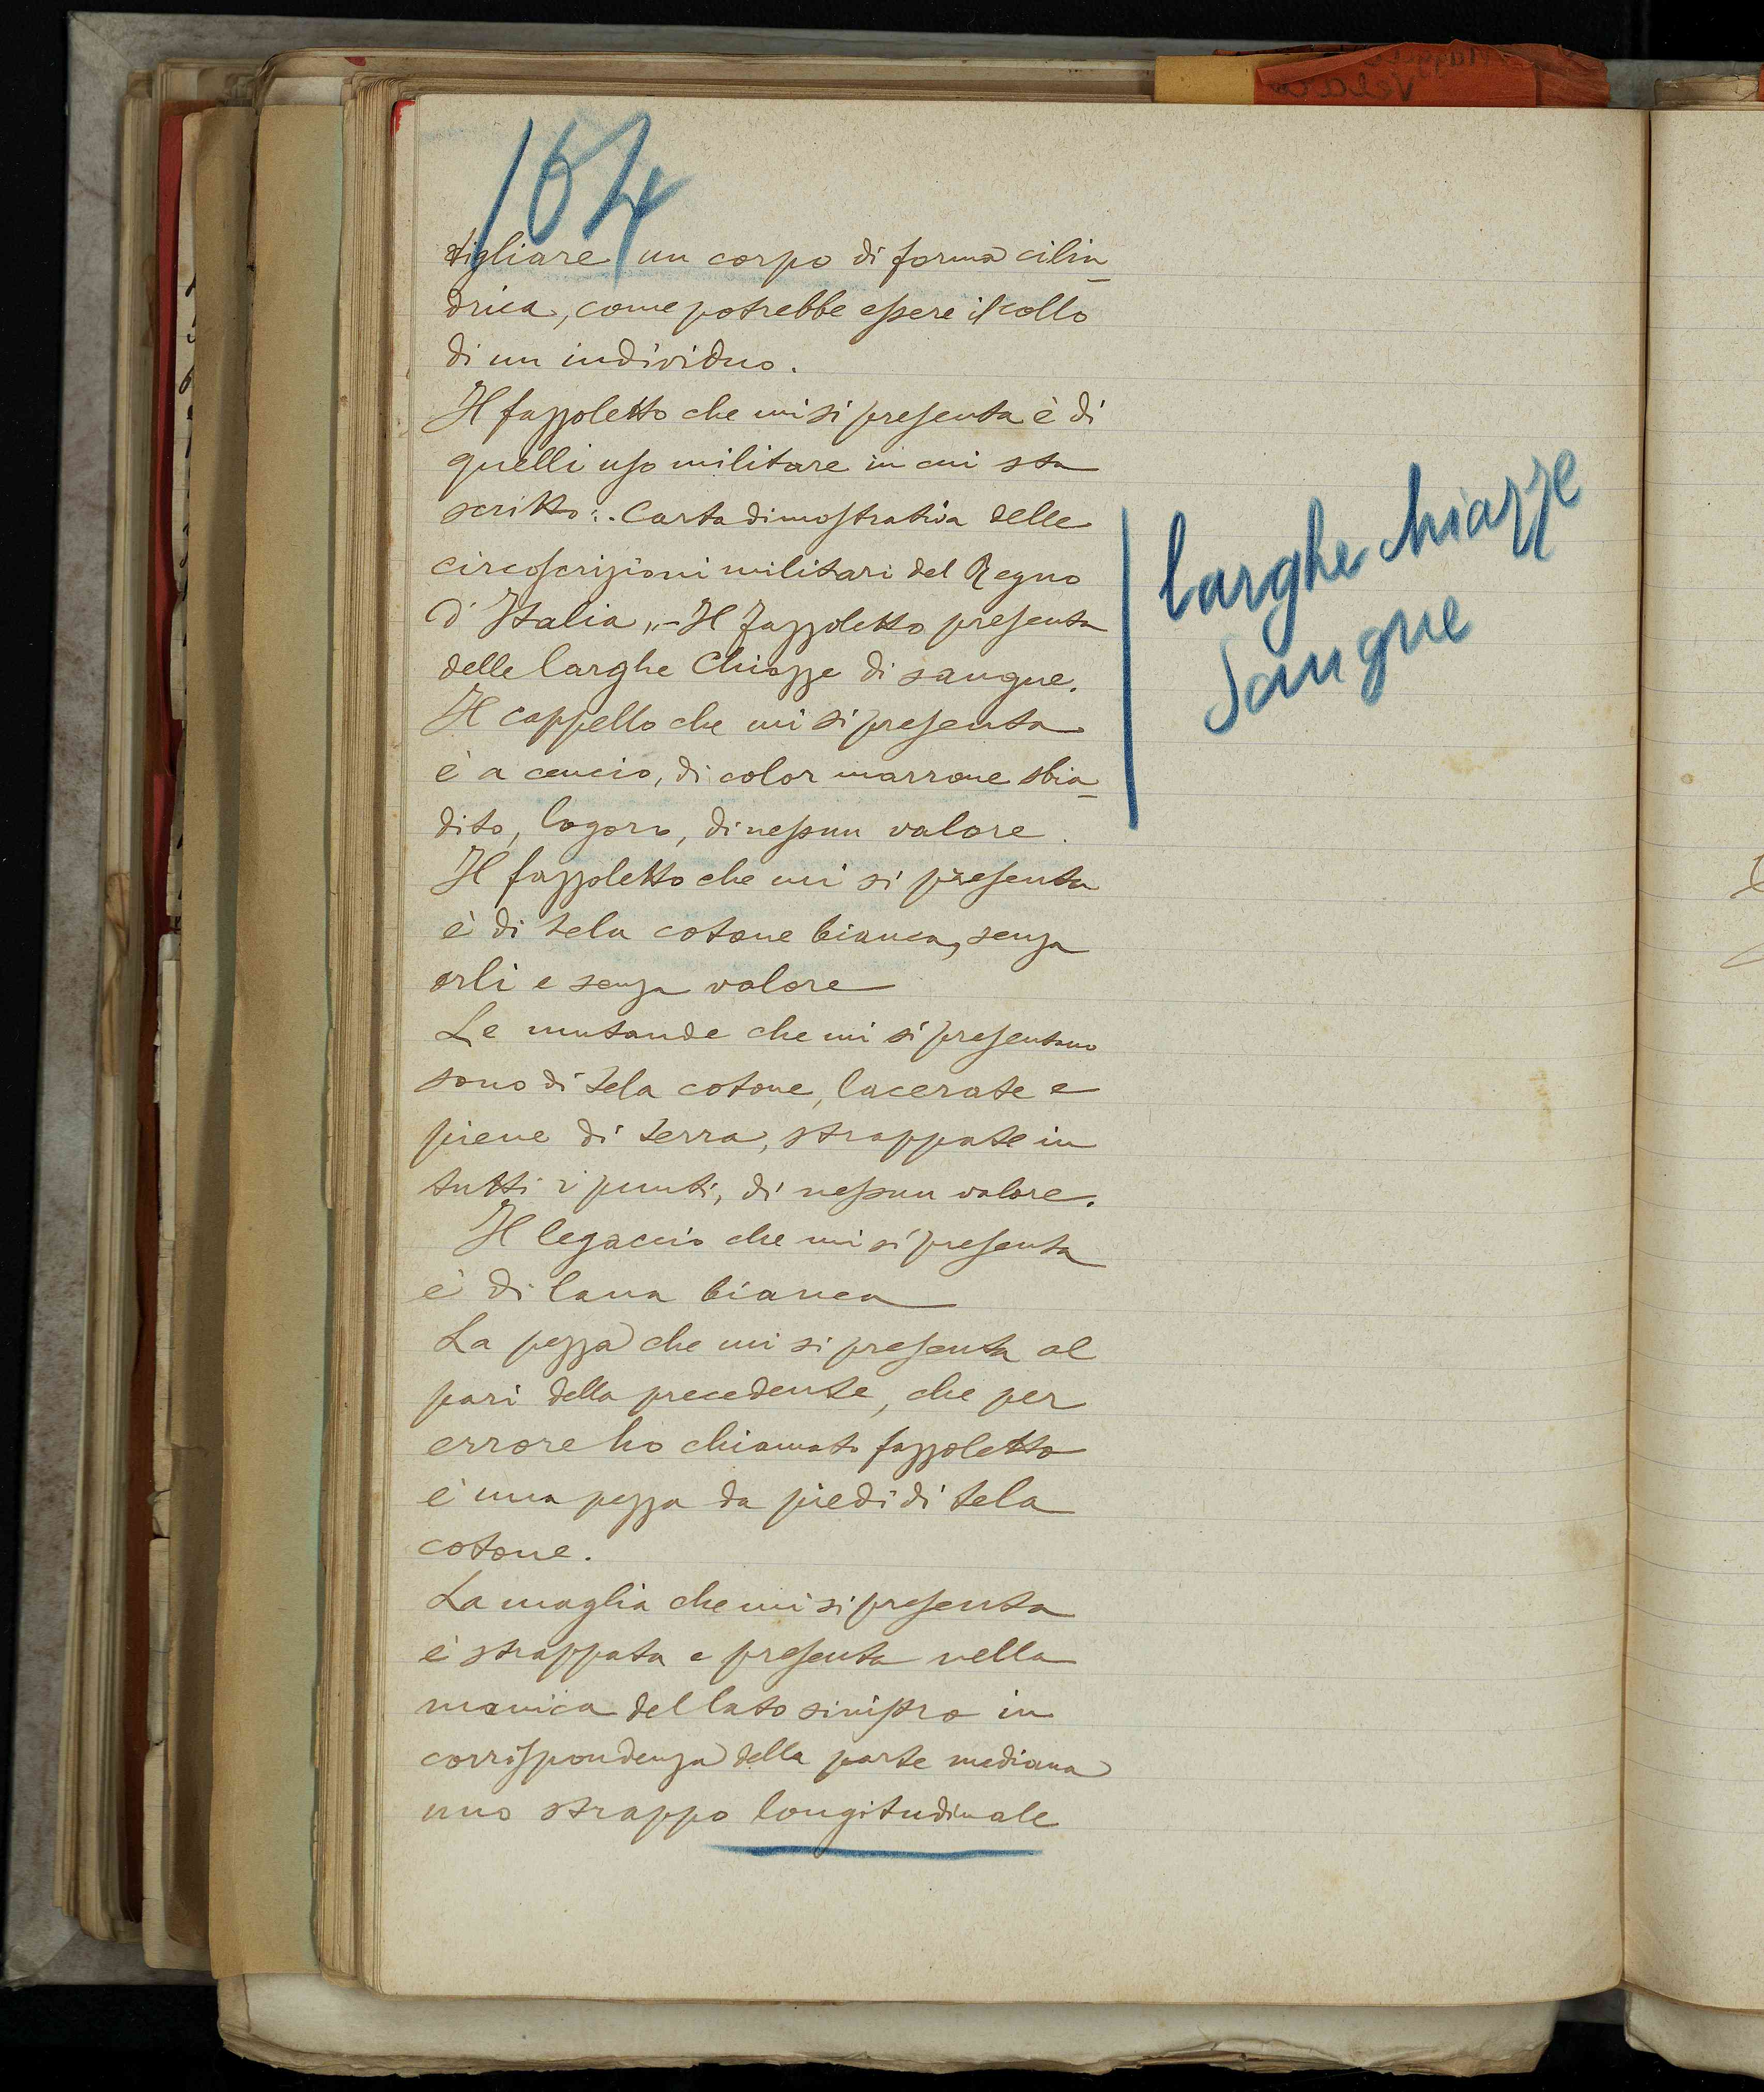 164
tigliare un corpo di forma cilin_
drica, come potrebbe essere il collo
di un individuo.
Il fazzoletto che mi si presenta è di
quelli uso militare in cui sta
scritto: "Carta dimostrativa delle
circoscrizioni militari del Regno
d'Italia„ - Il fazzoletto presenta
delle larghe chiazze di sangue.
Il cappello che mi si presenta
è a cencio, di color marrone sbia_
dito, logoro, di nessun valore.
Il fazzoletto che mi si presenta
è di tela cotone bianca, senza
orli e senza valore
Le mutande che mi si presentano
sono di tela cotone, lacerate e
piene di terra, strappate in
tutti i punti, di nessun valore.
Il legaccio che mi si presenta
è di lana bianca
La pezza che mi si presenta al
pari della precedente, che per
errore ho chiamato fazzoletto
è una pezza da piedi di tela
cotone.
La maglia che mi si presenta
è strappata e presenta nella
manica del lato sinistro in
corrispondenza della parte mediana
uno strappo longitudinale
larghe chiazze
Sangue